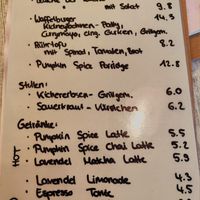 mit Salat 9.8
Waffelburger 14.5
Kichererbsen-Patty,
Currymayo, eing. Gurken, Grillgem.
Rührtofu 8.2
mit Spinat, Tomaten, Brot
Pumpkin Spice Porridge 12.8
Stullen:
· Kichererbsen- Grillgem. 6.0
· Sauerkraut - Würstchen 6.2
Getränke:
HOT
· Pumpkin Spice Latte 5.5
· Pumpkin Spice Chai Latte 5.2
· Lavendel Matcha Latte 5.9
· Lavendel Limonade 4.3
· Espresso Tonic 4.5